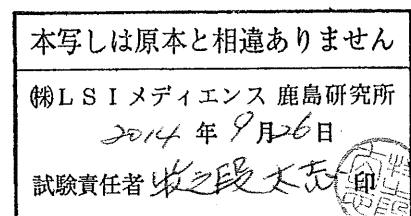 本写しは原本と相違ありません
㈱LSIメディエンス 鹿島研究所
2014年9月26日
試験責任者 印